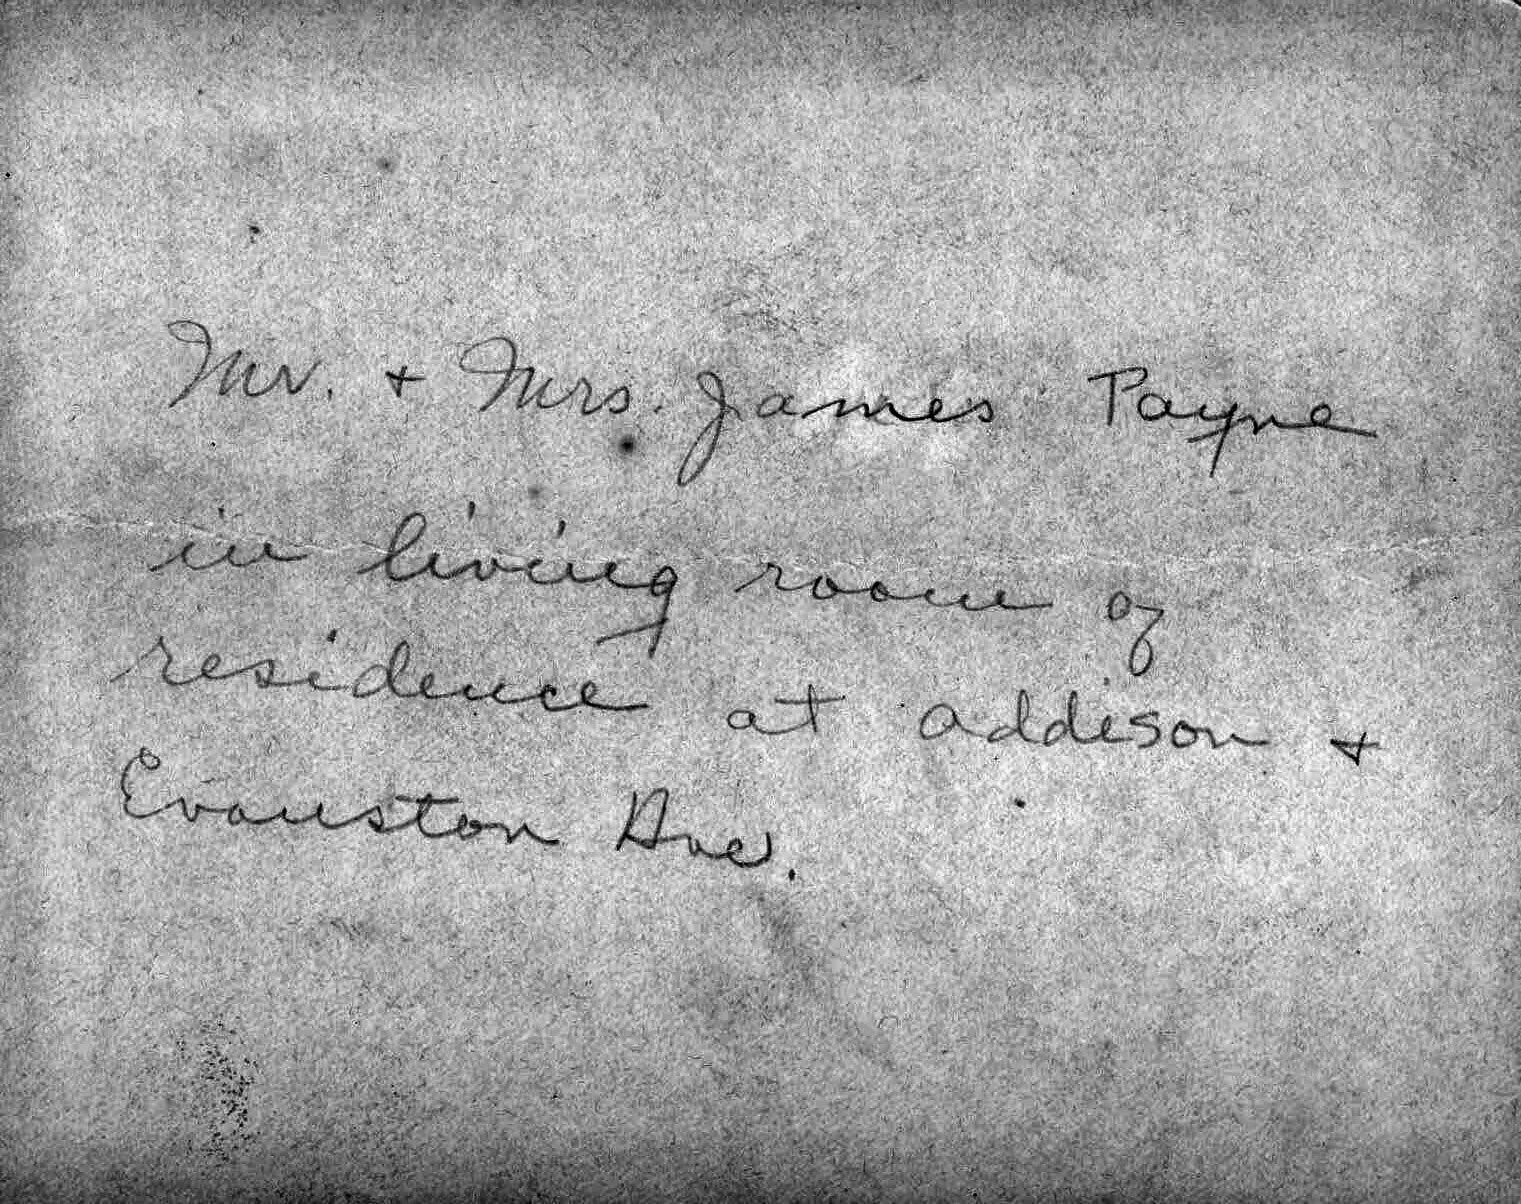 Mr. + Mrs. James Payne
in living room of
residence at addison +
Evanston Ave.